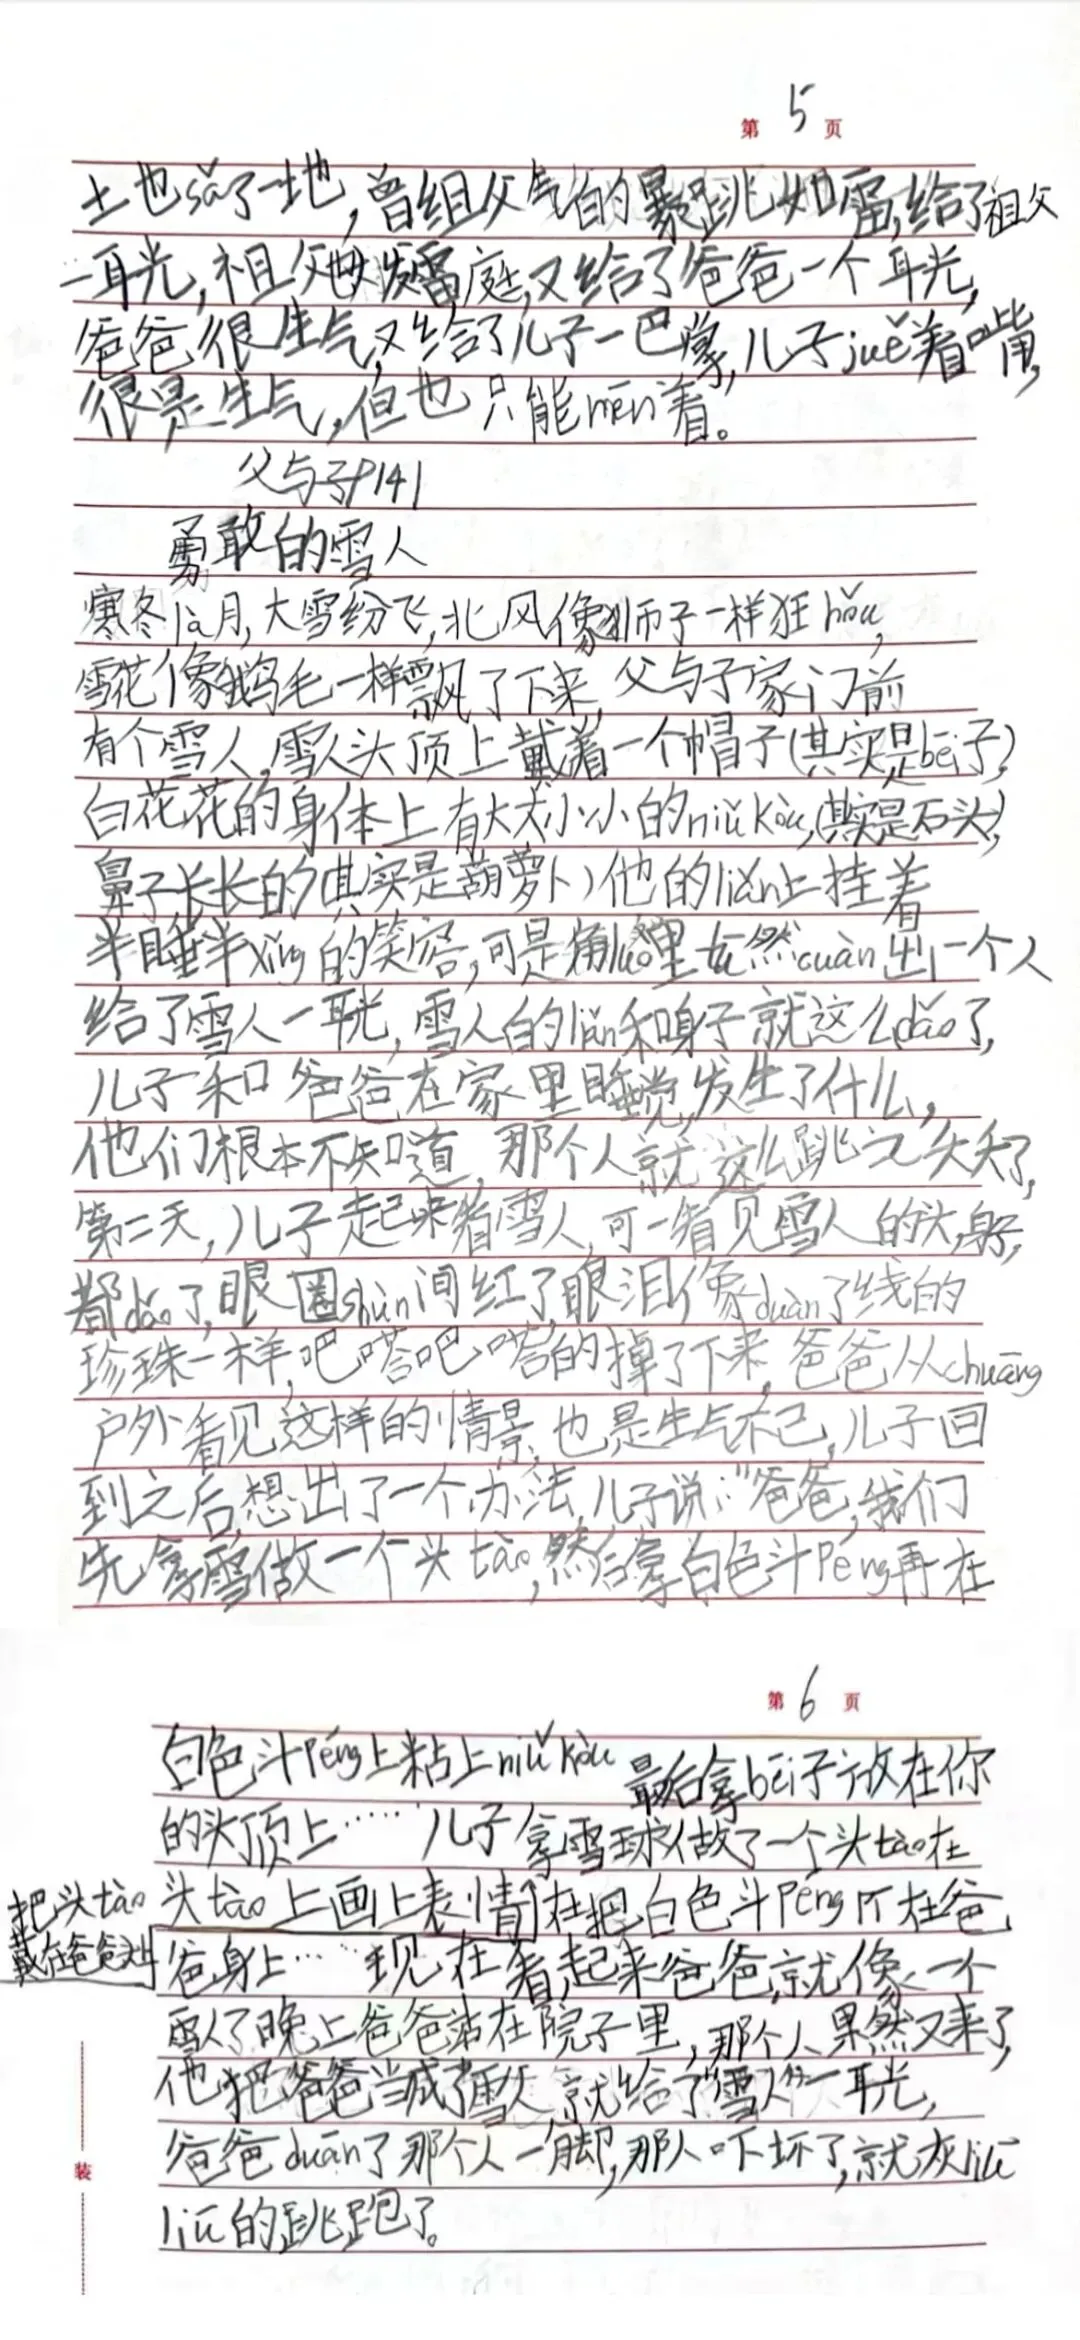 第 5 页
土也sǎ了一地,曾组父气的暴跳如雷,给了祖父
一耳光,祖父大发雷庭,又给了爸爸一个耳光,
爸爸很生气,又给了儿子一巴掌,儿子juē着嘴,
很是生气,但也只能mēn着。
父与子P141
勇敢的雪人
寒冬là月,大雪纷飞,北风像狮子一样狂hǒu,
雪花像鹅毛一样飘了下来,父与子家门前
有个雪人,雪人头顶上戴着一个帽子(其实是bēi子)
白花花的身体上有大大小小的niǔ kòu,(其实是石头),
鼻子长长的(其实是葫萝卜)他的liǎn上挂着
半睡半xǐng的笑容,可是角luò里突然cuàn出一个人
给了雪人一耳光,雪人的liǎn和身子就这么dǎo了,
儿子和爸爸在家里睡觉,发生了什么,
他们根本不知道,那个人就这么跳之夭夭了,
第二天,儿子起来看雪人,可一看见雪人的头,身子,
都dǎo了,眼圈shùn间红了,眼泪像duàn了线的
珍珠一样,吧嗒吧嗒的掉了下来,爸爸从chuāng
户外看见这样的情景,也是生气不己,儿子回
到之后,想出了一个办法,儿子说:“爸爸,我们
先拿雪做一个头tào,然后拿白色斗Péng再在
第 6 页
白色斗Péng上粘上niǔ kòu 最后拿bēi子放在你
的头顶上…… 儿子拿雪球做了一个头tào在
头tào上画上表情,在把白色斗Péng 在爸
把头tào
戴在爸爸头上
爸身上…… 现在看起来爸爸,就像一个
雪人了晚上爸爸站在院子里,那个人果然又来了,
他把爸爸当成了雪人,就给了“雪人”一耳光,
爸爸duān了那个人一脚,那人吓坏了,就灰liū
liū的跳跑了。
装